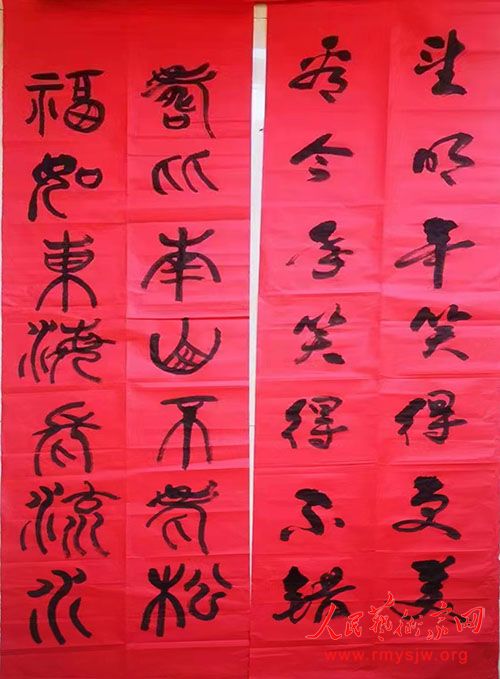 福如東海長流水
壽比南山不老松
看今年笑得不错
望明年笑得更美
人民藝術家网
www.rmysjw.org